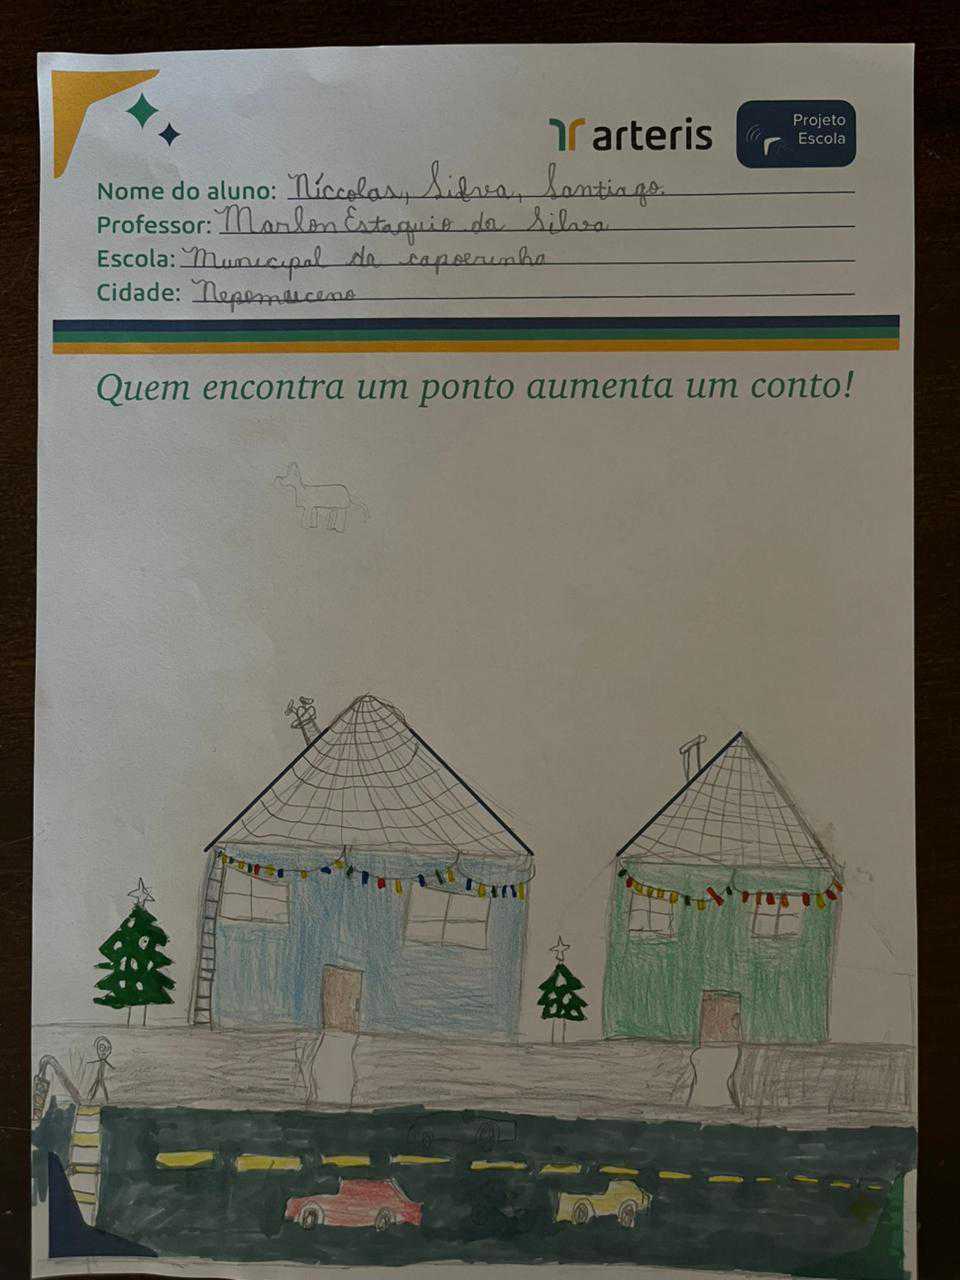 arteris
Projeto
Escola
Nome do aluno: Níccolas, Silva, Santiago.
Professor: Marlon Estaquio da Silva
Escola: Municipal da capoeirinha
Cidade: Nepomuceno
Quem encontra um ponto aumenta um conto!